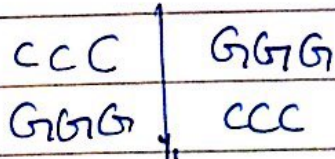 CCC GGG
GGG CCC